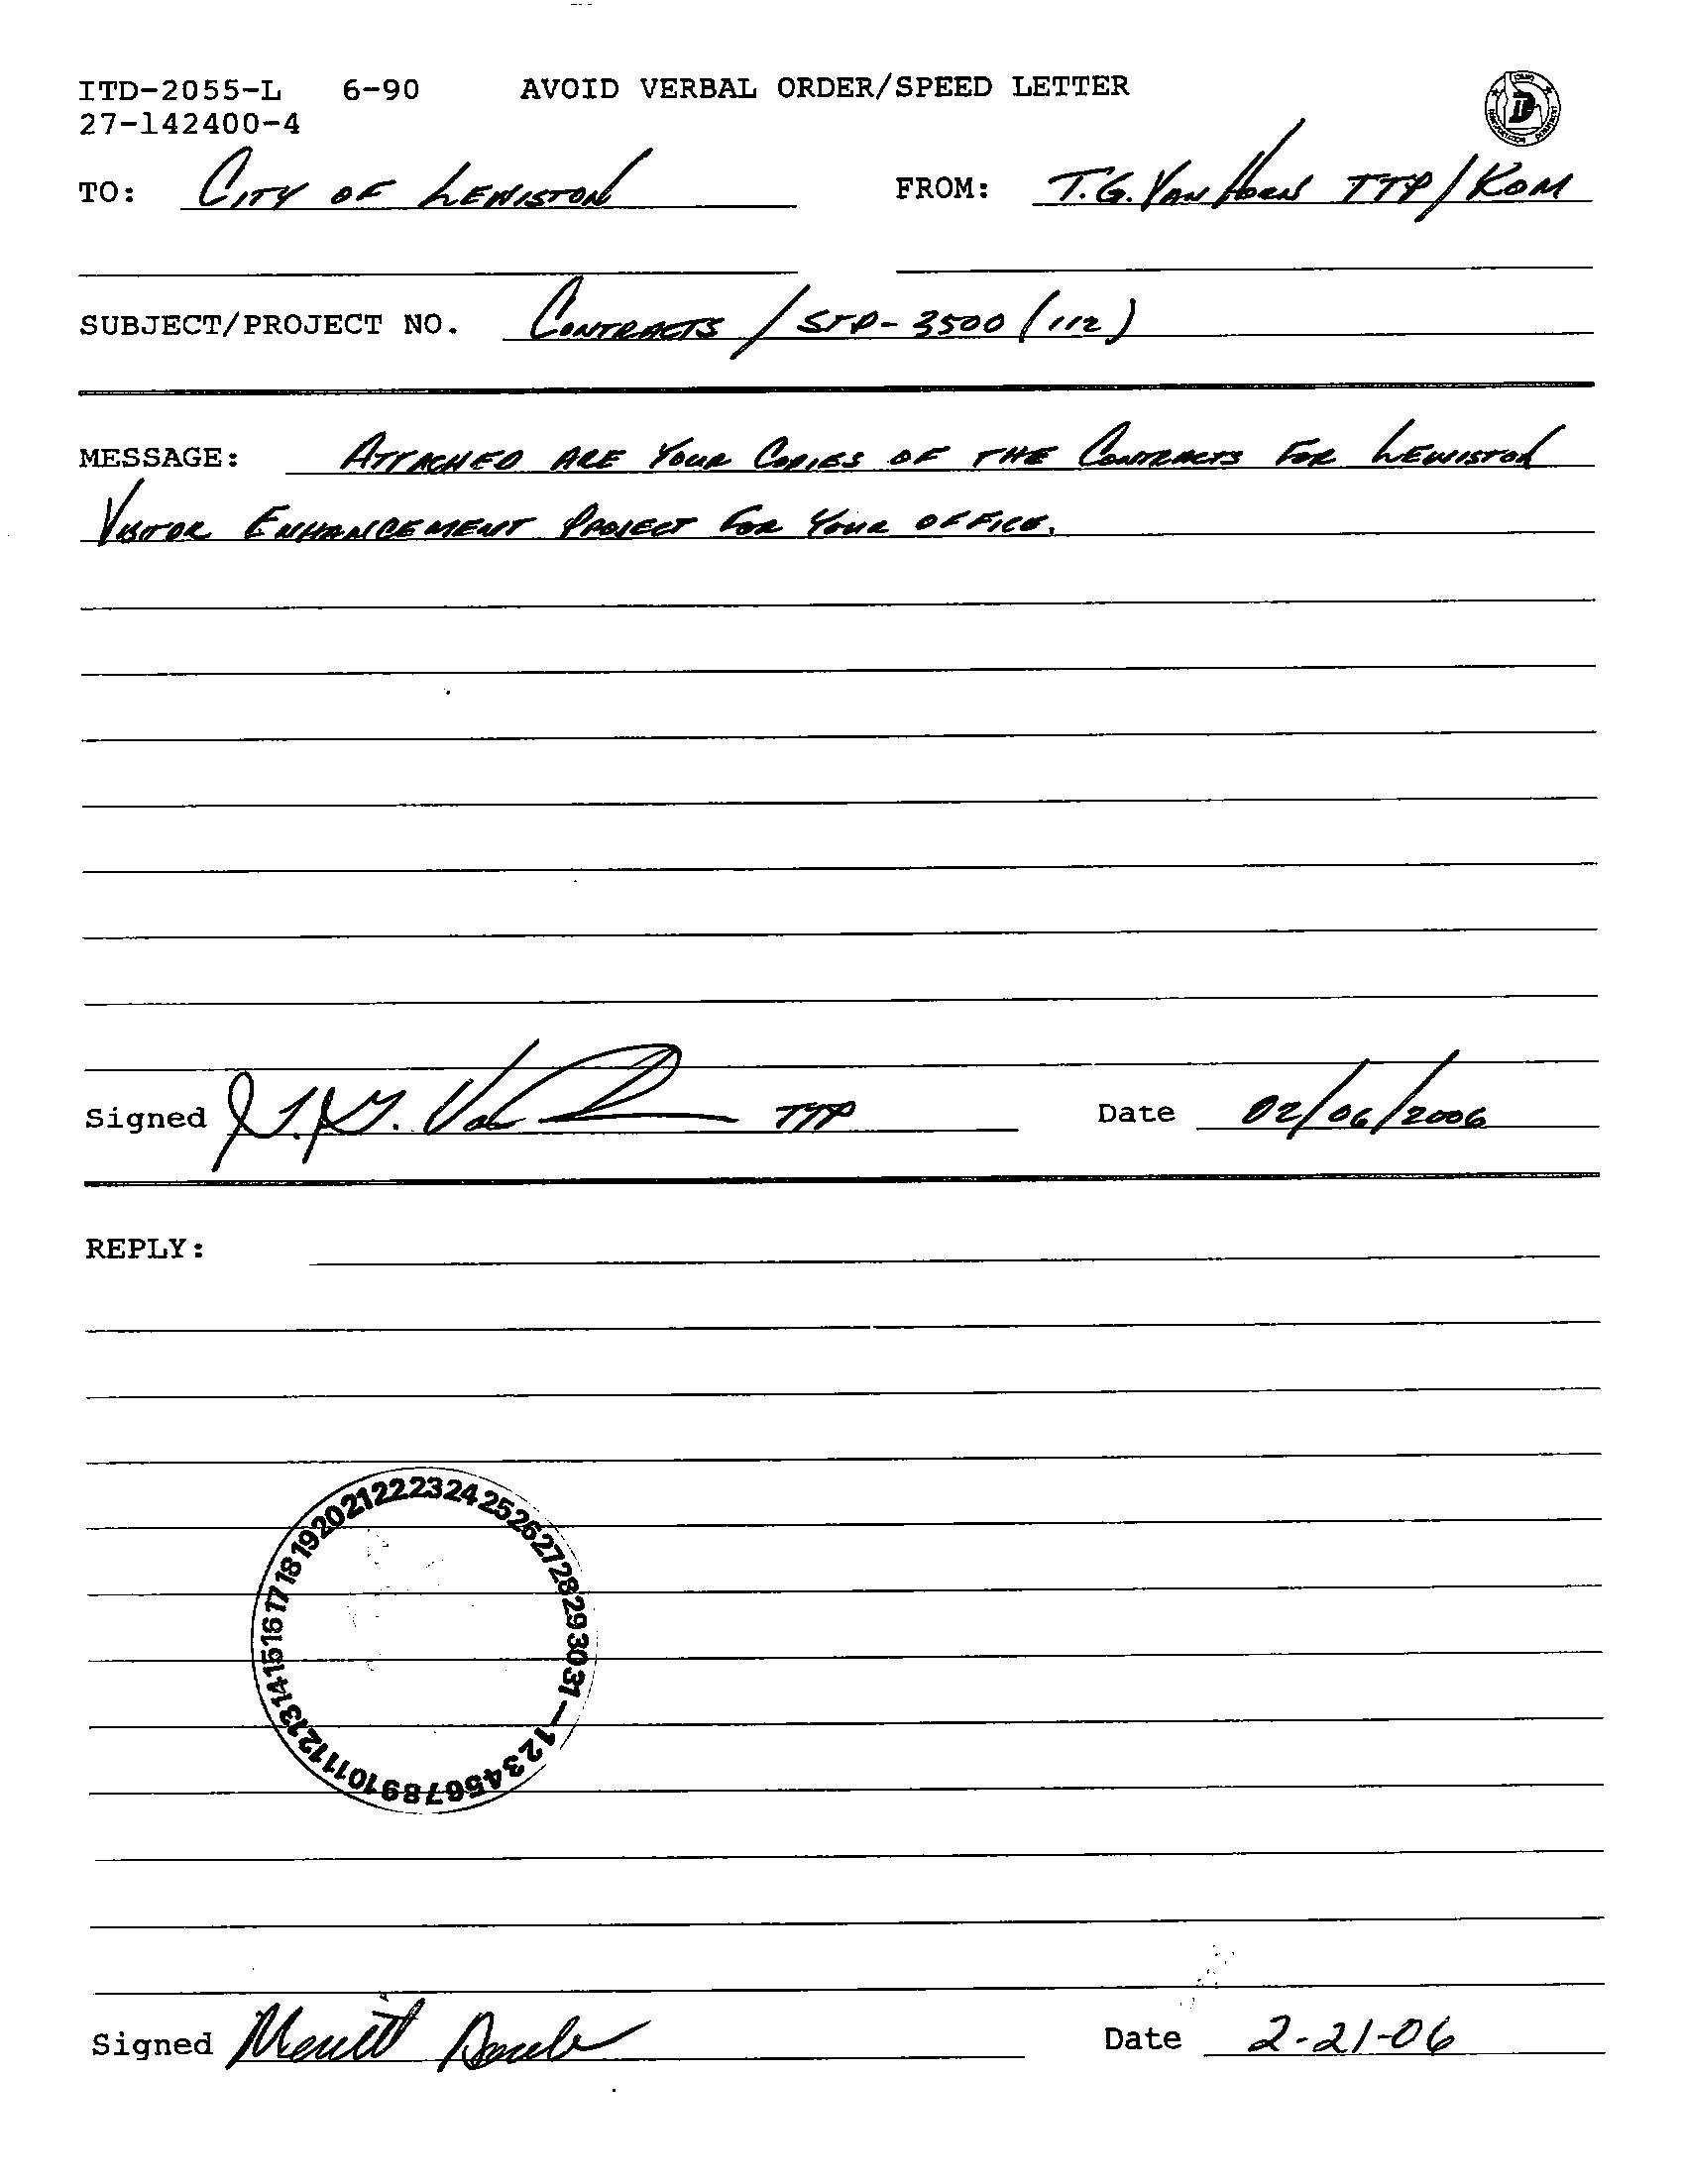 ITD-2055-L 6-90 AVOID VERBAL ORDER/SPEED LETTER
27-142400-4
TO: CITY OF LEWISTON FROM: T.G. VAN HORN TTP/KOM
SUBJECT/PROJECT NO. CONTRACTS / STP-3500 (112)
MESSAGE: ATTACHED ARE YOUR COPIES OF THE CONTRACTS FOR LEWISTON
VISITOR ENHANCEMENT PROJECT FOR YOUR OFFICE.
Signed TTP Date 02/06/2006
REPLY:
1 2 3 4 5 6 7 8 9 10 11 12 13 14 15 16 17 18 19 20 21 22 23 24 25 26 27 28 29 30 31
Signed Date 2-21-06